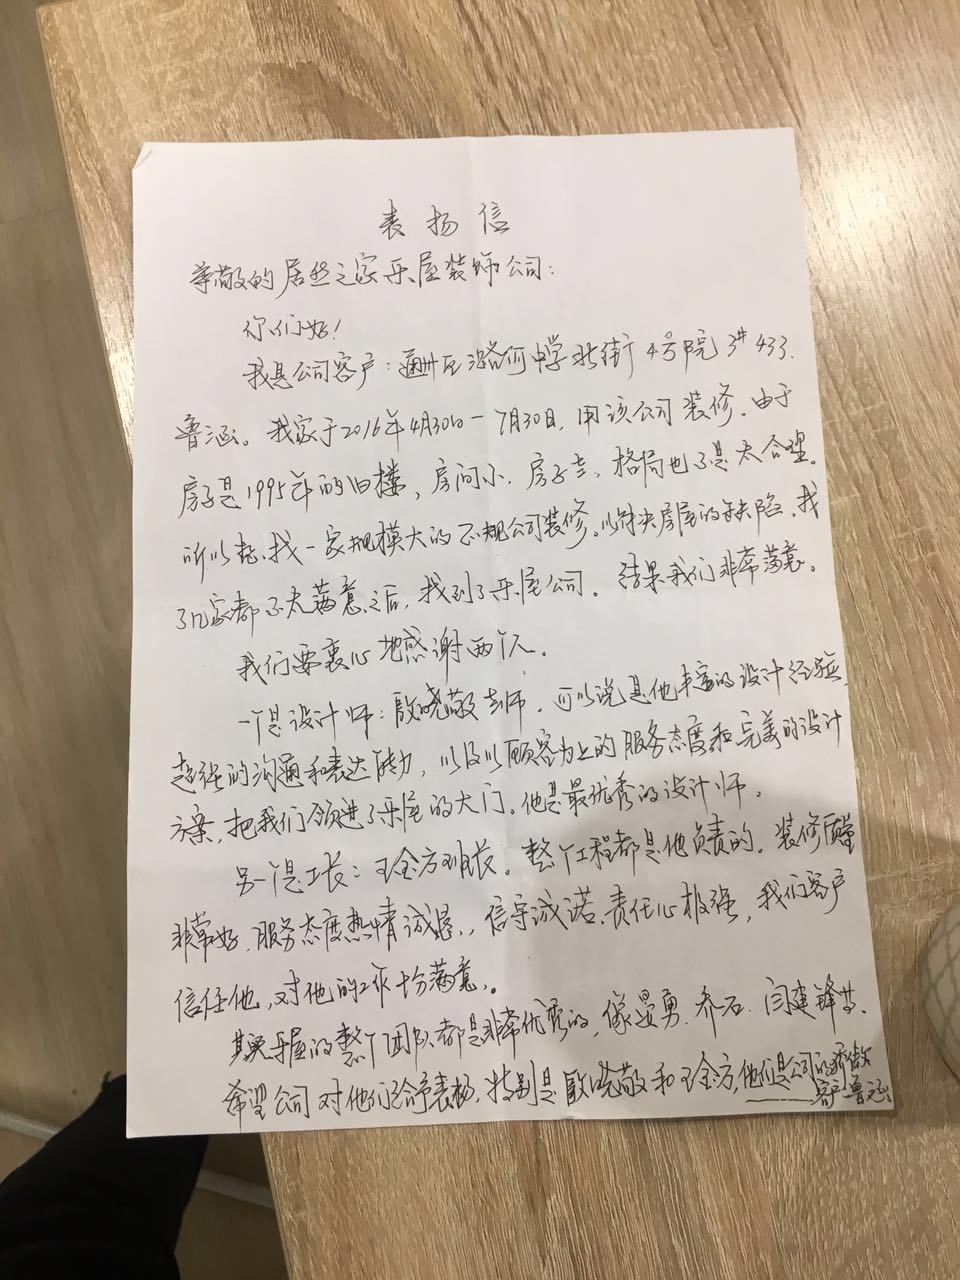 表扬信
尊敬的居然之家乐屋装饰公司：
你们好！
我是公司客户：通州区潞河中学北街4号院3#433.
鲁涵。我家于2016年4月30日一7月30日，用该公司装修。由于
房子是1995年的旧楼，房间小．房子，格局也不是太合理。
所以想找一家规模大的正规公司装修．以解决房屋的缺陷．找
了几家都不太满意之后，找到了乐屋公司．结果我们非常满意。
我们要衷心地感谢两个人．
一个是设计师：殷晓敬老师．可以说是他丰富的设计经验．
超强的沟通和表达能力，以及以顾客为上的服务态度和完美的设计
方案，把我们领进了乐屋的大门．他是最优秀的设计师．
另一个是工长：王全方班长。整个工程都是他负责的．装修质量
非常好．服务态度热情诚恳．信守诚诺．责任心极强，我们客户
信任他，对他的工作十分满意．。
其实乐屋的整个团队都是非常优秀的，像晏勇．乔石．闫建锋等．
希望公司对他们给予表扬．特别是殷晓敬和王全方，他们是公司的骄傲
客户鲁涵